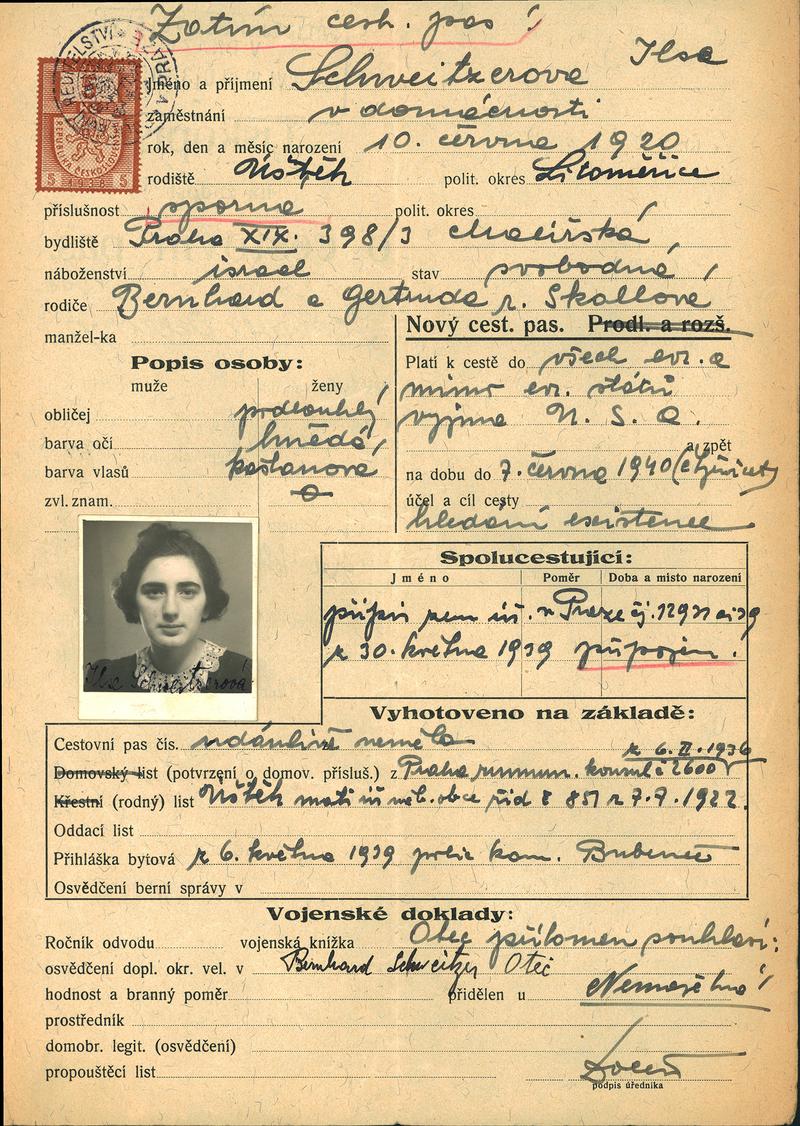 Zatím cest. pas!
Ilsa
jméno a příjmení Schweitzerova
zaměstnání v domácnosti
rok, den a měsíc narození 10. června 1920
rodiště Úštěk polit. okres Litoměřice
příslušnost sporna polit. okres
bydliště Praha XIX. 398/3
náboženství israel stav svobodná
rodiče Bernhard a Gertruda r. Skallová
manžel-ka
Nový cest. pas. Prodl. a rozš.
Popis osoby:
muže ženy
Platí k cestě do všech evr. a
mimo evr. států
vyjma
obličej
barva očí hnědá
barva vlasů kaštanova
zvl. znam.
a zpět
na dobu do 7. června 1940
účel a cíl cesty
hledání existence
Ilsa Schweitzerová
REPUBLIKA ČESKOSLOVENSKÁ
5 1938 5
Spolucestující:
Jméno Poměr Doba a místo narození
přípis v Praze čj.
z 30. května 1939 připojen!
Vyhotoveno na základě:
Cestovní pas čís. neměla
z 6. II. 1936
Domovský list (potvrzení o domov. přísluš.) z Praha 2600
Křestní (rodný) list Úštěk 7.7.1922.
Oddací list
Přihláška bytová z 6. května 1939 kom. Bubeneč
Osvědčení berní správy v
Vojenské doklady:
Ročník odvodu vojenská knížka Otec přítomen souhlasí:
osvědčení dopl. okr. vel. v Bernhard Schweitzer Otec
hodnost a branný poměr přidělen u Nemajetná
prostředník
domobr. legit. (osvědčení)
propouštěcí list
podpis úředníka